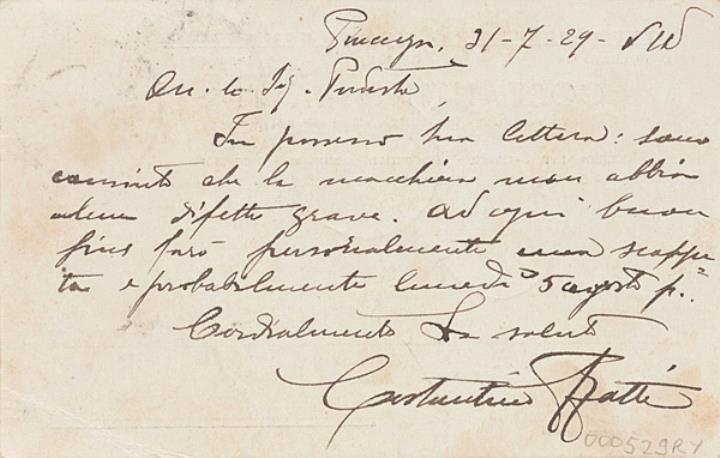 31-7-29- VII
On.le Sig. Podestà,
In possesso sua lettera: sono
convinto che la macchina non abbia
alcun difetto grave. Ad ogni buon
fine farò personalmente una scappa-
ta e probabilmente lunedì 5 agosto p.v.
Cordialmente La saluto
Costantino
000529RY